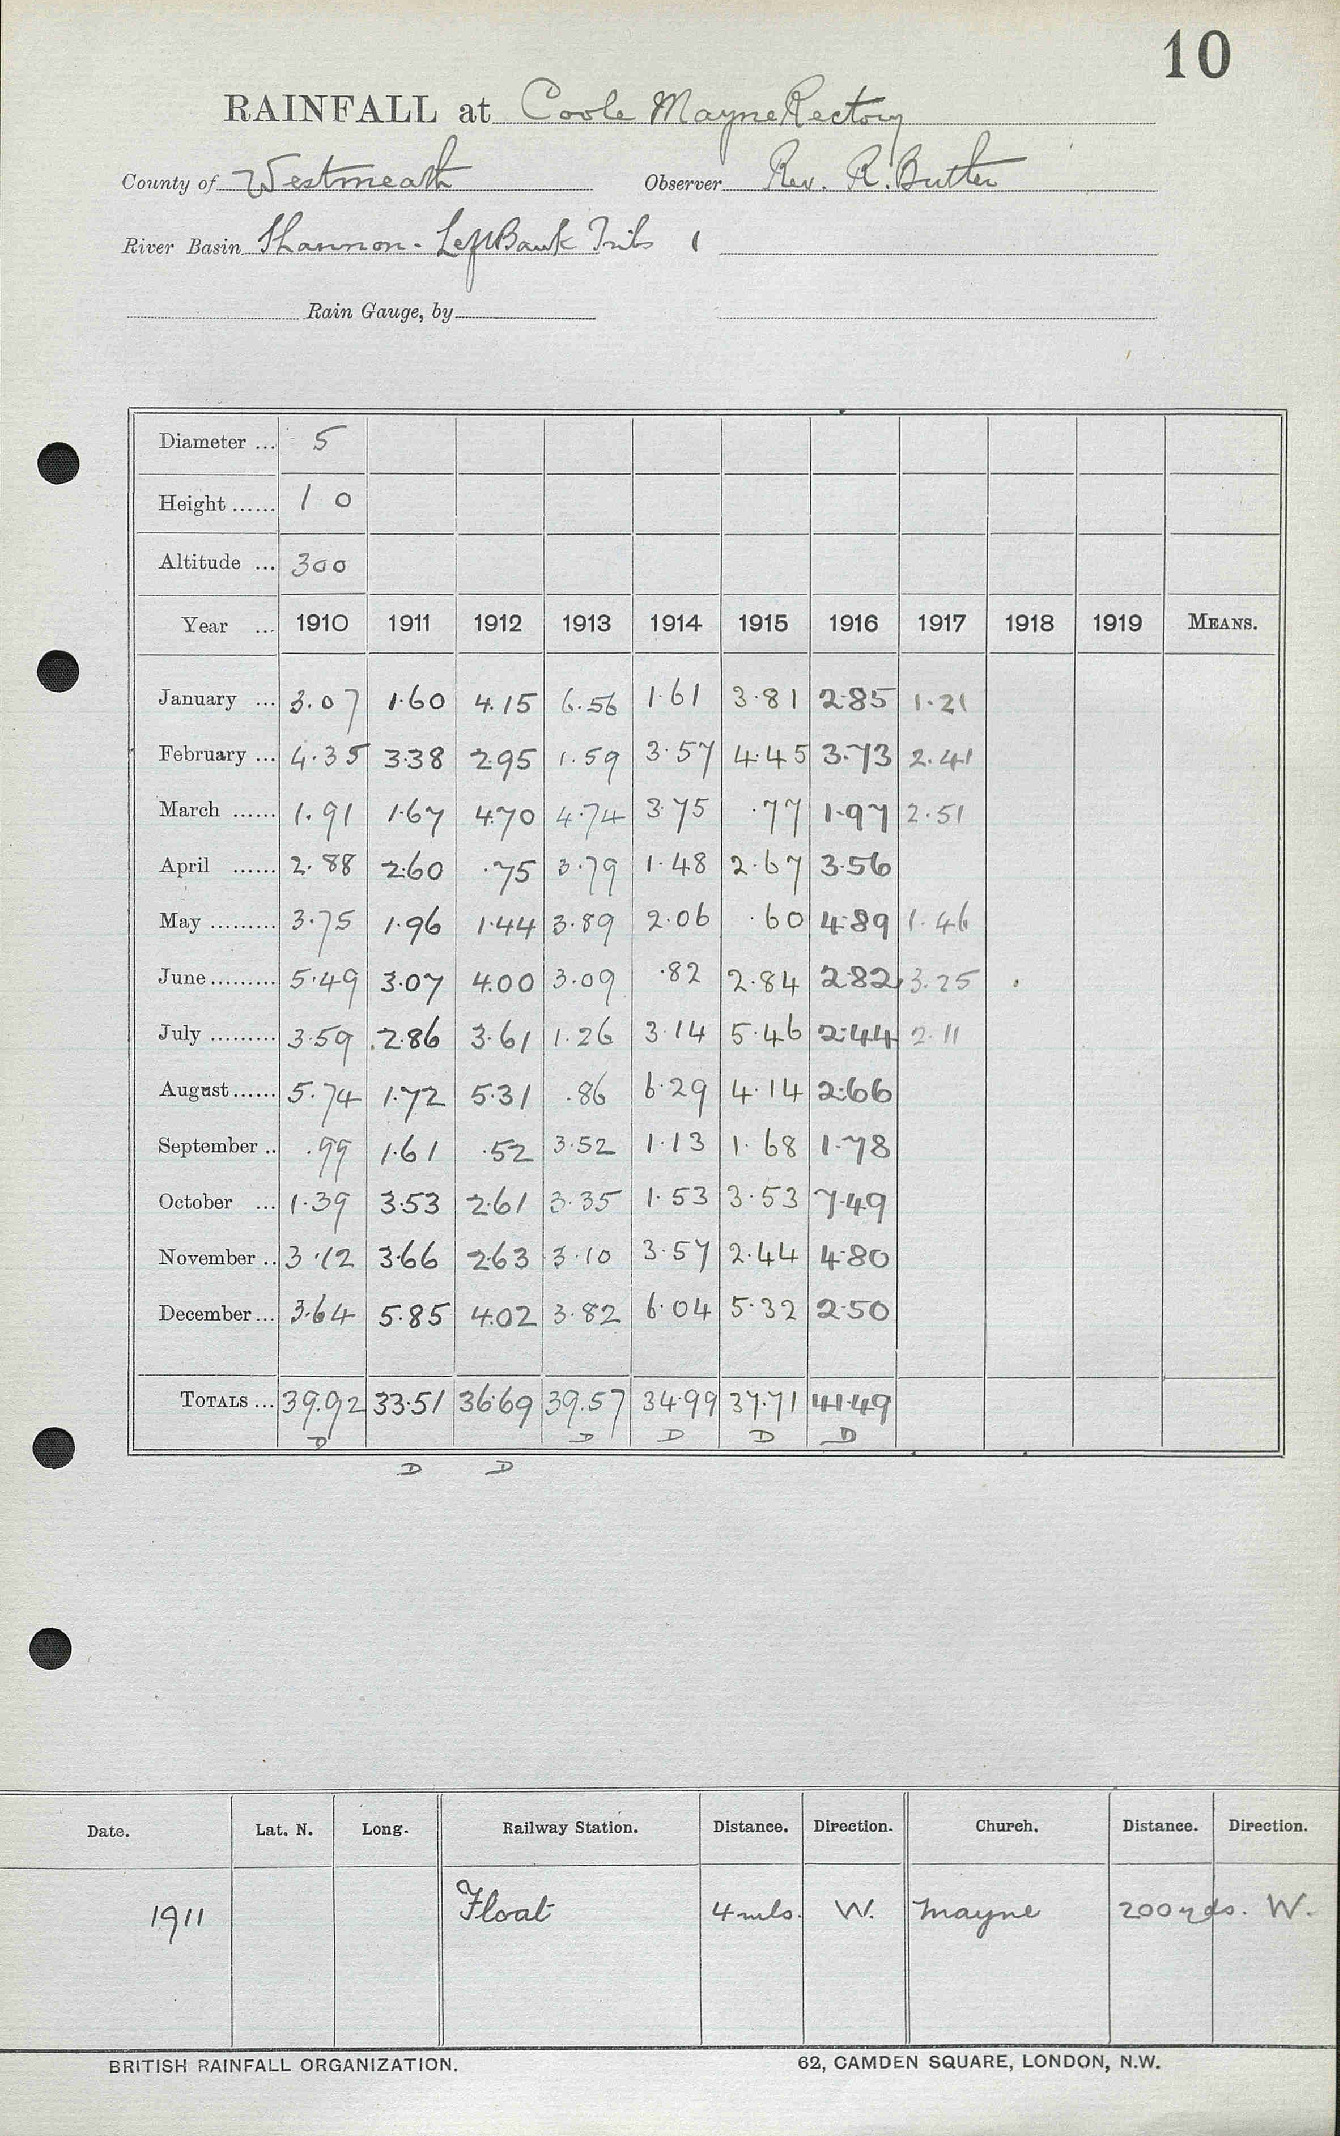 10
RAINFALL at Coole Mayne Rectory
County of Westmeath Observer Rev. R. Butler
River Basin Shannon - Left Bank Tribs 1
Rain Gauge, by
Diameter ... 5
Height ...... 1 0
Altitude ... 300
Year ... 1910 1911 1912 1913 1914 1915 1916 1917 1918 1919 MEANS.
January ... 3.07 1.60 4.15 6.56 1.61 3.81 2.85 1.21
February ... 4.35 3.38 2.95 1.59 3.57 4.45 3.73 2.41
March ...... 1.91 1.67 4.70 4.74 3.75 .77 1.97 2.51
April ...... 2.88 2.60 .75 3.79 1.48 2.67 3.56
May ......... 3.75 1.96 1.44 3.89 2.06 .60 4.89 1.46
June ......... 5.49 3.07 4.00 3.09 .82 2.84 2.82 3.25
July ......... 3.59 2.86 3.61 1.26 3.14 5.46 2.44 2.11
August ...... 5.74 1.72 5.31 .86 6.29 4.14 2.66
September .. .99 1.61 .52 3.52 1.13 1.68 1.78
October ... 1.39 3.53 2.61 3.35 1.53 3.53 7.49
November .. 3.12 3.66 2.63 3.10 3.57 2.44 4.80
December ... 3.64 5.85 4.02 3.82 6.04 5.32 2.50
TOTALS ... 39.92 33.51 36.69 39.57 34.99 37.71 41.49
D D D D D
D D
Date. Lat. N. Long. Railway Station. Distance. Direction. Church. Distance. Direction.
1911 Float 4 mls. W. Mayne 200 yds. W.
BRITISH RAINFALL ORGANIZATION. 62, CAMDEN SQUARE, LONDON, N.W.